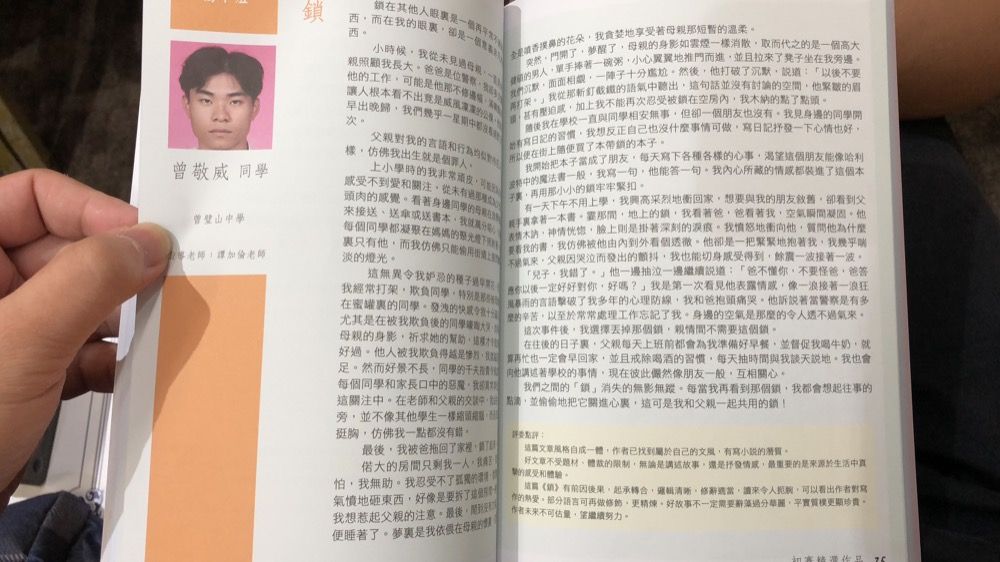 鎖
曾敬威 同學
曾璧山中學
指導老師：譚加倫老師
鎖在其他人眼裏是一個再平常不
西，而在我的眼裏，卻是一個意義
西。
小時候，我從未見過母親，一直
親照顧我長大。爸爸是位警察，我
他的工作，可能是他那不修邊幅，滿
讓人根本看不出竟是威風凜凜的公
早出晚歸，我們幾乎一星期中都沒
次。
父親對我的言語和行為均似對
樣，仿佛我出生就是個罪人。
上小學時的我非常頑皮，可能因
感受不到愛和關注，從未有過那種
頭肉的感覺。看著身邊同學的母親在
來接送、送傘或送書本，我就萬分
每個同學都凝聚在媽媽的聚光燈下
裏只有他，而我仿佛只能偷用街邊上
淡的燈光。
這無異令我妒忌的種子過早開花
我經常打架，欺負同學，特別是那
在蜜罐裏的同學。發洩的快感令我十分
尤其是在被我欺負後的同學嚷嚷大哭，
母親的身影，祈求她的幫助，這樣才令
好過。他人被我欺負得越是慘烈，我就
足。然而好景不長，同學的千夫指責令
每個同學和家長口中的惡魔，我卻
這關注中。在老師和父親的交談中，我
旁，並不像其他學生一樣縮頭縮腦，而是
挺胸，仿佛我一點都沒有錯。
最後，我被爸拖回了家裡，鎖了起
偌大的房間只剩我一人，我痛苦，
怕，我無助。我忍受不了孤獨的環境，
氣憤地砸東西，好像是要拆了這個
我想惹起父親的注意。最後，鬧到沒有
便睡著了。夢裏是我依偎在母親的懷裏
全是噴香撲鼻的花朵，我貪婪地享受著母親那短暫的溫柔。
突然，門開了，夢醒了，母親的身影如雲煙一樣消散，取而代之的是一個高大
健碩的男人，單手捧著一碗粥，小心翼翼地推門而進，並且拉來了凳子坐在我旁邊。
我們沉默，面面相覷，一陣子十分尷尬。然後，他打破了沉默，説道：「以後不要
再打架。」我從那斬釘截鐵的語氣中聽出，這句話並沒有討論的空間，他緊皺的眉
頭，甚有壓迫感，加上我不能再次忍受被鎖在空房內，我木訥的點了點頭。
隨後我在學校一直與同學相安無事，但卻一個朋友也沒有。我見身邊的同學開
始有寫日記的習慣，我想反正自己也沒什麼事情可做，寫日記抒發一下心情也好，
所以便在街上隨便買了本帶鎖的本子。
我開始把本子當成了朋友，每天寫下各種各樣的心事，渴望這個朋友能像哈利
波特中的魔法書一般，我寫一句，他能答一句。我內心所藏的情感都裝進了這個本
子裏，再用那小小的鎖牢牢緊扣。
有一天下午不用上學，我興高采烈地衝回家，想要與我的朋友敘舊，卻看到父
親手裏拿著一本書。霎那間，地上的鎖，我看著爸，爸看著我，空氣瞬間凝固。他
表情木訥，神情恍惚，臉上則是掛著深刻的淚痕。我憤怒地衝向他，質問他為什麼
要看我的書，我仿佛被他由內到外看個透徹。他卻是一把緊緊地抱著我，我幾乎喘
不過氣來，父親因哭泣而發出的顫抖，我也能切身感受得到，餘震一波接著一波。
「兒子，我錯了。」他一邊抽泣一邊繼續説道：「爸不懂你，不要怪爸，爸答
應你以後一定好好對你，好嗎？」我是第一次看見他表露情感，像一浪接著一浪狂
風暴雨的言語擊破了我多年的心理防線，我和爸抱頭痛哭。他訴説著當警察是有多
麼的辛苦，以至於常常處理工作忘記了我。身邊的空氣是那麼的令人透不過氣來。
這次事件後，我選擇丟掉那個鎖，親情間不需要這個鎖。
在往後的日子裏，父親每天上班前都會為我準備好早餐，並督促我喝牛奶，就
算再忙也一定會早回家，並且戒除喝酒的習慣，每天抽時間與我談天説地。我也會
向他講述著學校的事情，現在彼此儼然像朋友一般，互相關心。
我們之間的「鎖」消失的無影無蹤。每當我再看到那個鎖，我都會想起往事的
點滴，並偷偷地把它關進心裏，這可是我和父親一起共用的鎖！
評委點評：
這篇文章風格自成一體，作者已找到屬於自己的文風，有寫小説的潛質。
好文章不受題材、體裁的限制，無論是講述故事，還是抒發情感，最重要的是來源於生活中真
摯的感受和體驗。
這篇《鎖》有前因後果，起承轉合，邏輯清晰，修辭適當，讀來令人扼腕，可以看出作者對寫
作的熱愛。部分語言可再做修飾，更精煉。好故事不一定需要辭藻過分華麗，平實質樸更顯珍貴。
作者未來不可估量，望繼續努力。
初賽精選作品 75